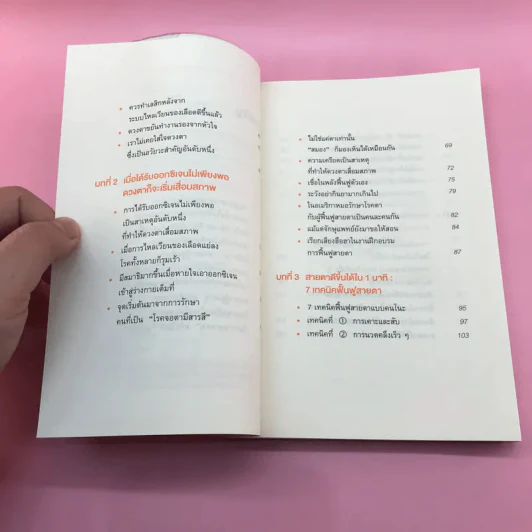 • ควรทำเลสิกหลังจาก
ระบบไหลเวียนของเลือดดีขึ้นแล้ว
• ดวงตาขยันทำงานรองจากหัวใจ
• เราไม่เคยใส่ใจดวงตา
ซึ่งเป็นอวัยวะสำคัญอันดับหนึ่ง
บทที่ 2 เมื่อได้รับออกซิเจนไม่เพียงพอ
ดวงตาก็จะเริ่มเสื่อมสภาพ
• การได้รับออกซิเจนไม่เพียงพอ
เป็นสาเหตุอันดับหนึ่ง
ที่ทำให้ดวงตาเสื่อมสภาพ
• เมื่อการไหลเวียนของเลือดแย่ลง
โรคทั้งหลายก็รุมเร้า
• มีสมาธิมากขึ้นเมื่อหายใจเอาออกซิเจน
เข้าสู่ร่างกายเต็มที่
• จุดเริ่มต้นมาจากการรักษา
คนที่เป็น “โรคจอตามีสารสี”
• ไม่ใช่แค่ตาเท่านั้น
“สมอง” ก็มองเห็นได้เหมือนกัน 69
• ความเครียดเป็นสาเหตุ
ที่ทำให้ตาเสื่อมสภาพ 72
• เชื่อในพลังฟื้นฟูตัวเอง 75
• ระวังอย่ากินยามากเกินไป 79
• ในอเมริกาหมอรักษาโรคตา
กับผู้ฟื้นฟูสายตาเป็นคนละคนกัน 82
• แม้แต่จักษุแพทย์ยังมาขอให้สอน 84
• เรียกเสียงฮือฮาในงานฝึกอบรม
การฟื้นฟูสายตา 87
บทที่ 3 สายตาดีขึ้นได้ใน 1 นาที :
7 เทคนิคฟื้นฟูสายตา
• 7 เทคนิคฟื้นฟูสายตาแบบคนโนะ 95
• เทคนิคที่ ① การเคาะและสับ 97
• เทคนิคที่ ② การนวดคลึงเร็ว ๆ 103